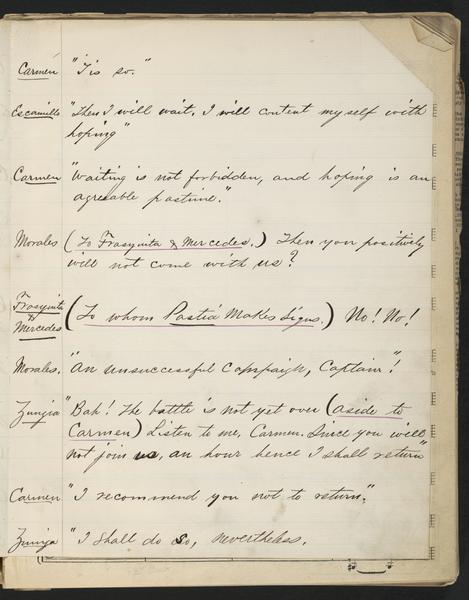 Carmen "'Tis so."
Escamillo "Then I will wait. I will content myself with
hoping"
Carmen "Waiting is not forbidden, and hoping is an
agreable pastime."
Morales (To Frasquita & Mercedes.) Then you positively
will not come with us?
Frasquita
&
Mercedes (To whom Pastia makes signs.) No! No!
Morales. "An unsuccessful campaign, Captain"!
Zunija "Bah! The battle is not yet over (aside to
Carmen) Listen to me, Carmen. Since you will
not join us, an hour hence I shall return"
Carmen "I recommend you not to return".
Zuniga "I shall do so, nevertheless.